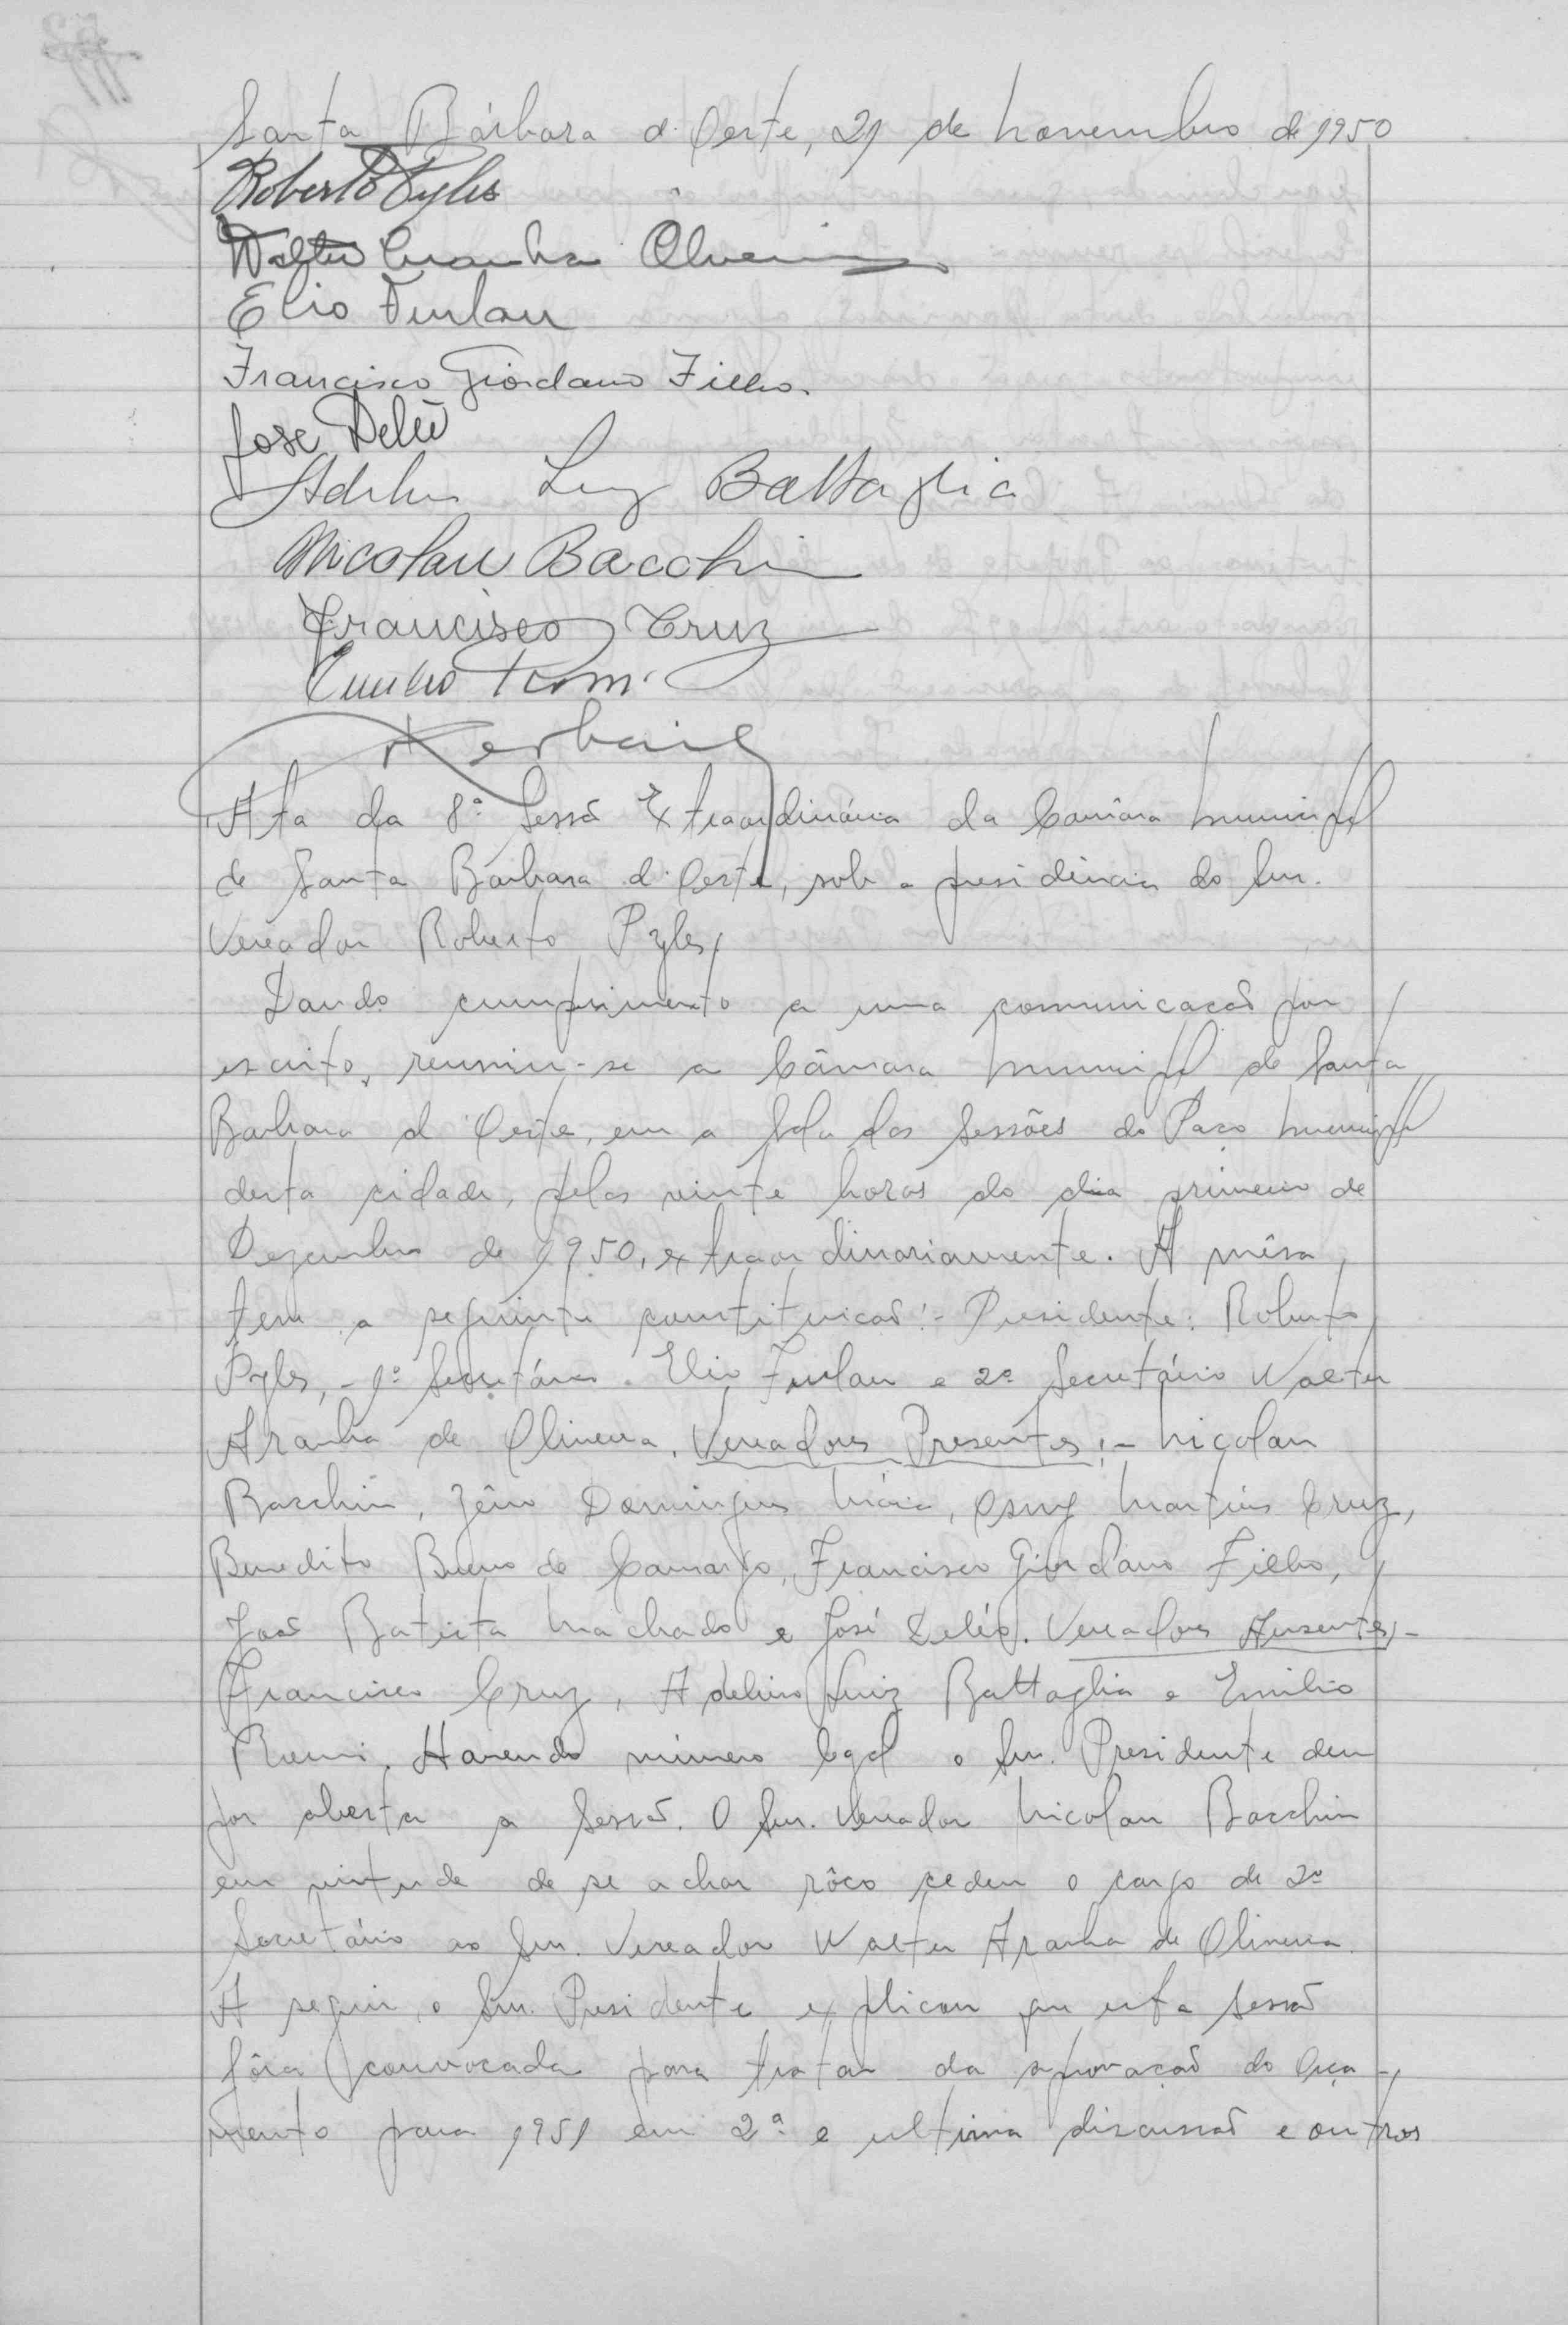 Santa Bárbara d'Oeste, 21 de novembro de 1950
Roberto Pyles
Walter Aranha Oliveira
Elio Furlan
Francisco Giordano Filho.
Jose Deleo
Adelino Luiz Battaglia
Nicolau Bacchin
Francisco Cruz
Emilio Romi
Ata da 8ª Sessã Extraordinária da Camâra municipal
de Santa Bárbara d'Oeste, sob a presidência do Snr.
Vereador Roberto Pyles,
Dando cumprimento a uma comunicacaõ por
escrito, reuniu-se a Câmara municipal de Santa
Barbara d'Oeste, em a Sala das Sessões do Paço municipal
desta cidade, pelas vinte horas do dia primeiro de
Dezembro de 1950, extraordinariamente. A mêsa
tem a seguinte constituicaõ:- Presidente: Roberto
Pyles,- 1º Secretário. Elio Furlan e 2º Secretário Walter
Aranha de Oliveira. Vereadores Presentes:- Nicolau
Bacchin, Zêno Domingues Máia, Osny Martins Cruz,
Benedito Bueno de Camargo, Francisco Giordano Filho,
Joaõ Batista Machado e José Deléo. Vereadores Ausentes,-
Francisco Cruz, Adelino Luiz Battaglia e Emilio
Romi. Havendo número legal o Snr. Presidente deu
por aberta a Sessã. O Snr. Vereador Nicolau Bacchin
em virtude de se achar rôco cedeu o cargo de 2º
Secretário ao Snr. Vereador Walter Aranha de Oliveira.
A seguir, o Snr. Presidente explicou que esta sessã
fôra convocada para tratar da aprovaçaõ do Orça-
mento para 1951 em 2ª e ultima discussaõ e outros